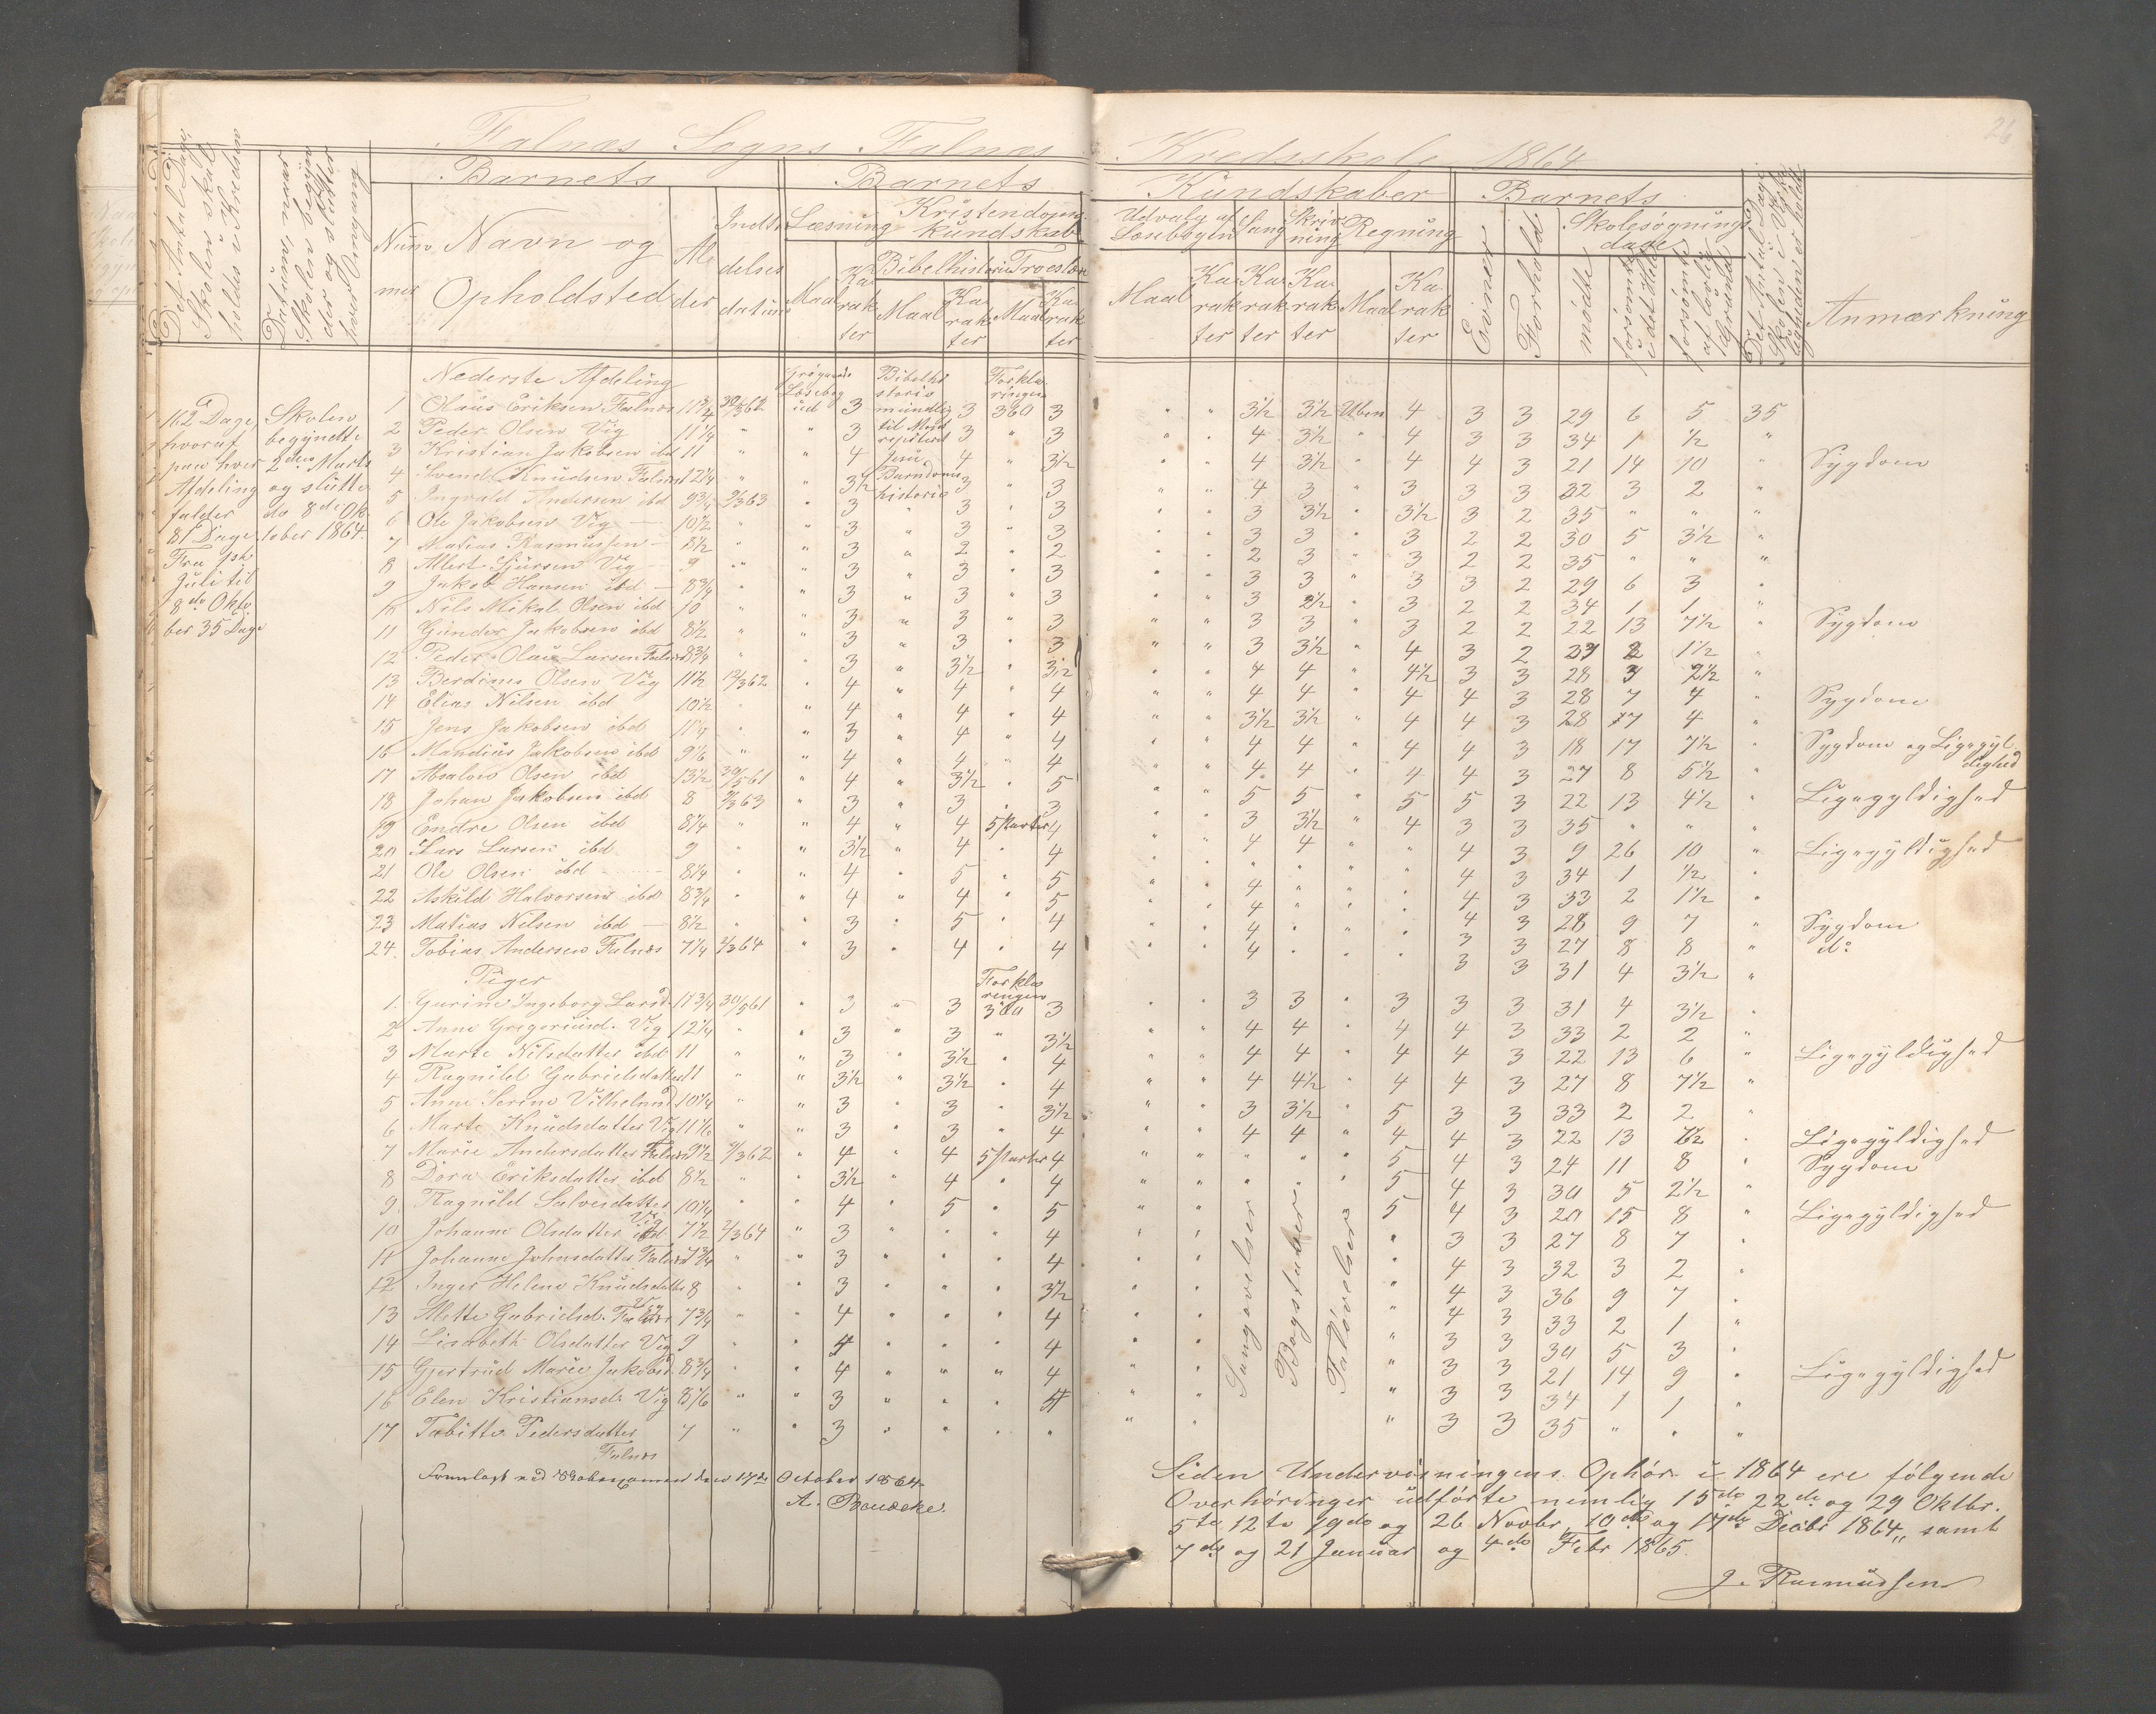 26
Falnæs Sogns Falnæs Kredsskole 1864
Det Antal Dage, Skolen skal holdes i Kredsen
Datum, naar Skolen begynder og skutter hver Omgang
Barnets
Nummer
Navn og Opholdsted
Alder
Indtrædelsesdatum
Barnets Kundskaber
Læsning
Kristendomskundskab
Bibelhistorie
Troeslære
Udvalg af Læsebogen
Sang
Skrivning
Regning
Maal
Karakter
Barnets
Evner
Forhold
Skolesøgningsdage
mødte
forsømte i det Hele
forsømte af lovlig Grund
Anmærkning
162 Dage, hvoraf paa hver Afdeling falder 81 Dage. Fra Juli til 8de Oktober 35 Dage
Skolen begyndte 2den Marts og sluttede 8de Oktober 1864.
Nederste Afdeling
1 Olaus Eriksen Falnæs 11 3/4 3 3 3 3½ 3½ 4 3 3 29 6 5 35
2 Peder Olsen Vig 11¼ " " 3 3 " 3 " " 4 3½ " 4 3 3 34 1 ½ "
3 Kristian Jakobsen ibd 11 " " 4 4 " 3½ " " 4 3½ " 4 4 3 21 14 10 " Sygdom
4 Svend Knudsen Falnæs 12¼ " " 3½ 3 " 3 " " 4 3 " 3 3 3 32 3 2 "
5 Ingvald Andersen ibd 9¾ 2/3 63 " 3 3 " 3 " " 3 3½ " 3½ 3 2 35 " " "
6 Ole Jakobsen Vig 10½ " " 3 " 3 " 3 " " 3 3 " 3 2 2 30 5 3½ "
7 Matias Rasmussen 8½ " " 3 " 2 " 2 " " 2 3 " 3 2 2 35 " " "
8 Albert Sjursen Vig 9 " " 3 " 3 " 3 " " 3 3 " 3 3 2 29 6 3 "
9 Jakob Hansen ibd 8¾ " " 3 " 3 " 3 " " 3 2½ " 3 2 2 34 1 1 "
10 Nils Mikal Olsen ibd 10 " " 3 " 3 " 3 " " 3 3 " 3 2 2 22 13 7½ " Sygdom
11 Gunder Jakobsen ibd 8½ " " 3 " 3 " 3 " " 3 3½ " 4 3 2 2 1½ "
12 Peder Olaus Larsen Falnæs 8¾ " " 3 " 3½ " 3½ " " 4 4 " 4½ 3 3 28 2½ "
13 Berdinus Olsen Vig 11½ 62 " 4 " 4 " 4 " " 4 4 " 4 4 3 28 7 4 " Sygdom
14 Elias Nilsen ibd 10½ " " 4 " 4 " 4 " " 3½ 3½ " 4 4 3 28 7 4 "
15 Jens Jakobsen ibd " " 3 " 4 " 4 " " 4 4 " 4 4 3 18 17 7½ " Sygdom og Ligegyldighed
16 Mandius Jakobsen ibd 9 1/6 " " 4 " 4 " 4 " " 4 4 " 4 4 3 27 8 5½ "
17 Absalon Olsen ibd 13½ 30/5 61 " 4 " 3½ " 5 " " 5 5 " 5 5 3 22 13 4½ " Ligegyldighed
18 Johan Jakobsen ibd 8 2/3 63 " 3 " 3 " 3 " " 3 3½ " 4 3 3 35 " " "
19 Endre Olsen ibd 8¼ " " 4 " 4 5 Parter 4 " " 4 4 " " 4 3 9 26 10 " Ligegyldighed
20 Lars Larsen ibd 9 " " 3½ " 4 " 4 " " " " " " 4 3 34 1 ½ "
21 Ole Olsen ibd 8¼ " " 4 " 5 " 5 " " 4 " " " 4 3 33 2 1½ "
22 Askild Halvorsen ibd 8¾ " " 4 " 4 " 5 " " 4 " " " 4 3 28 9 7 " Sygdom
23 Matias Nilsen ibd 8½ " " 3 " 5 " 4 " " 4 " " " 3 3 27 8 8 " do
24. Tobias Andersen Falnæs 7¼ 2/3 64 " 3 " 4 " 4 " " 4 " " " 3 3 31 4 3½ "
Piger
1. Gurine Ingeborg Larsd. 11¾ 30/5 61 " 3 " 3 Forklaringen 3 " " 3 3 " 3 3 3 31 4 3½ "
2 Anne Gregoriusd. Vig 12¼ " " 3 " 3 " 3½ " " 4 4 " 4 4 3 33 2 2 "
3 Marte Nilsdatter ibd 11 " " 3 " 3½ " 4 " " 4 4 " 4 4 3 22 13 6 " Ligegyldighed
4 Ragnild Gabrielsdatter 11 " " 3½ " 3½ " 4 " " 4 4½ " 4 4 3 27 8 7½ "
5 Anne Serine Vilhelmsd 10¼ " " 3 " 3 " 3½ " " 3 3½ " 5 3 3 33 2 2 "
6 Marte Knudsdatter Vig 11 1/6 " " 3 " 3 " 4 " " 4 4 " 4 4 3 22 13 " Ligegyldighed
7 Marie Andersdatter Falnæs 9½ 62 " 4 " 4 5 Parter 4 " " " " " 5 4 3 24 11 8 " Sygdom
8 Dora Eriksdatter ibd 8½ " " 3½ " 4 " 4 " " " " " 5 4 3 30 5 2½ "
9. Ragnild Salvesdatter Vig 10¼ " " 4 " 5 " 5 " " " " " 5 4 3 20 15 8 " Ligegyldighed
10 Johanne Olsdatter ibd 7½ 2/3 64 " 3 " " " 4 " " " 3 3 27 8 7 "
11 Johanne Johnsdatter Falnæs 7¾ " " 3 " " " 4 " " " 4 3 32 3 2 "
12 Inger Helene Knudsdatter 8 " " 3 " " " 3½ " " " 4 3 36 9 7 "
13 Mette Gabrielsd. Vig 7¾ " " 4 " " " 4 " " " 4 3 33 2 1 "
14 Lisabeth Olsdatter Vig 9 " " 4 " " " 4 " " " 3 3 30 5 3 "
15 Gjertrud Marie Jakobsd. 8¾ " " 4 " " " 4 " " " 3 3 21 14 9 " Ligegyldighed
16 Elen Kristiansd. Vig 8 1/6 " " 3 " " " " " " 3 3 34 1 1 "
17 Tabitte Pedersdatter Falnæs 7 " " 3 " " " " " " " 3 3 35 " " "
Sangøvelser
Bogstaver
Taløvelser
Fremlagt ved Skoleexamen den 17de October 1864.
Siden Undervisningens Ophør i 1864 ere følgende
Overhøringer udførte nemlig 15de 22de og 29 Oktbr.
5te 12te 19de og 26 Novbr, 10de og 17de Decbr 1864,, samt
7de og 21 Januar og 4de Febr 1865.
J. Rasmussen